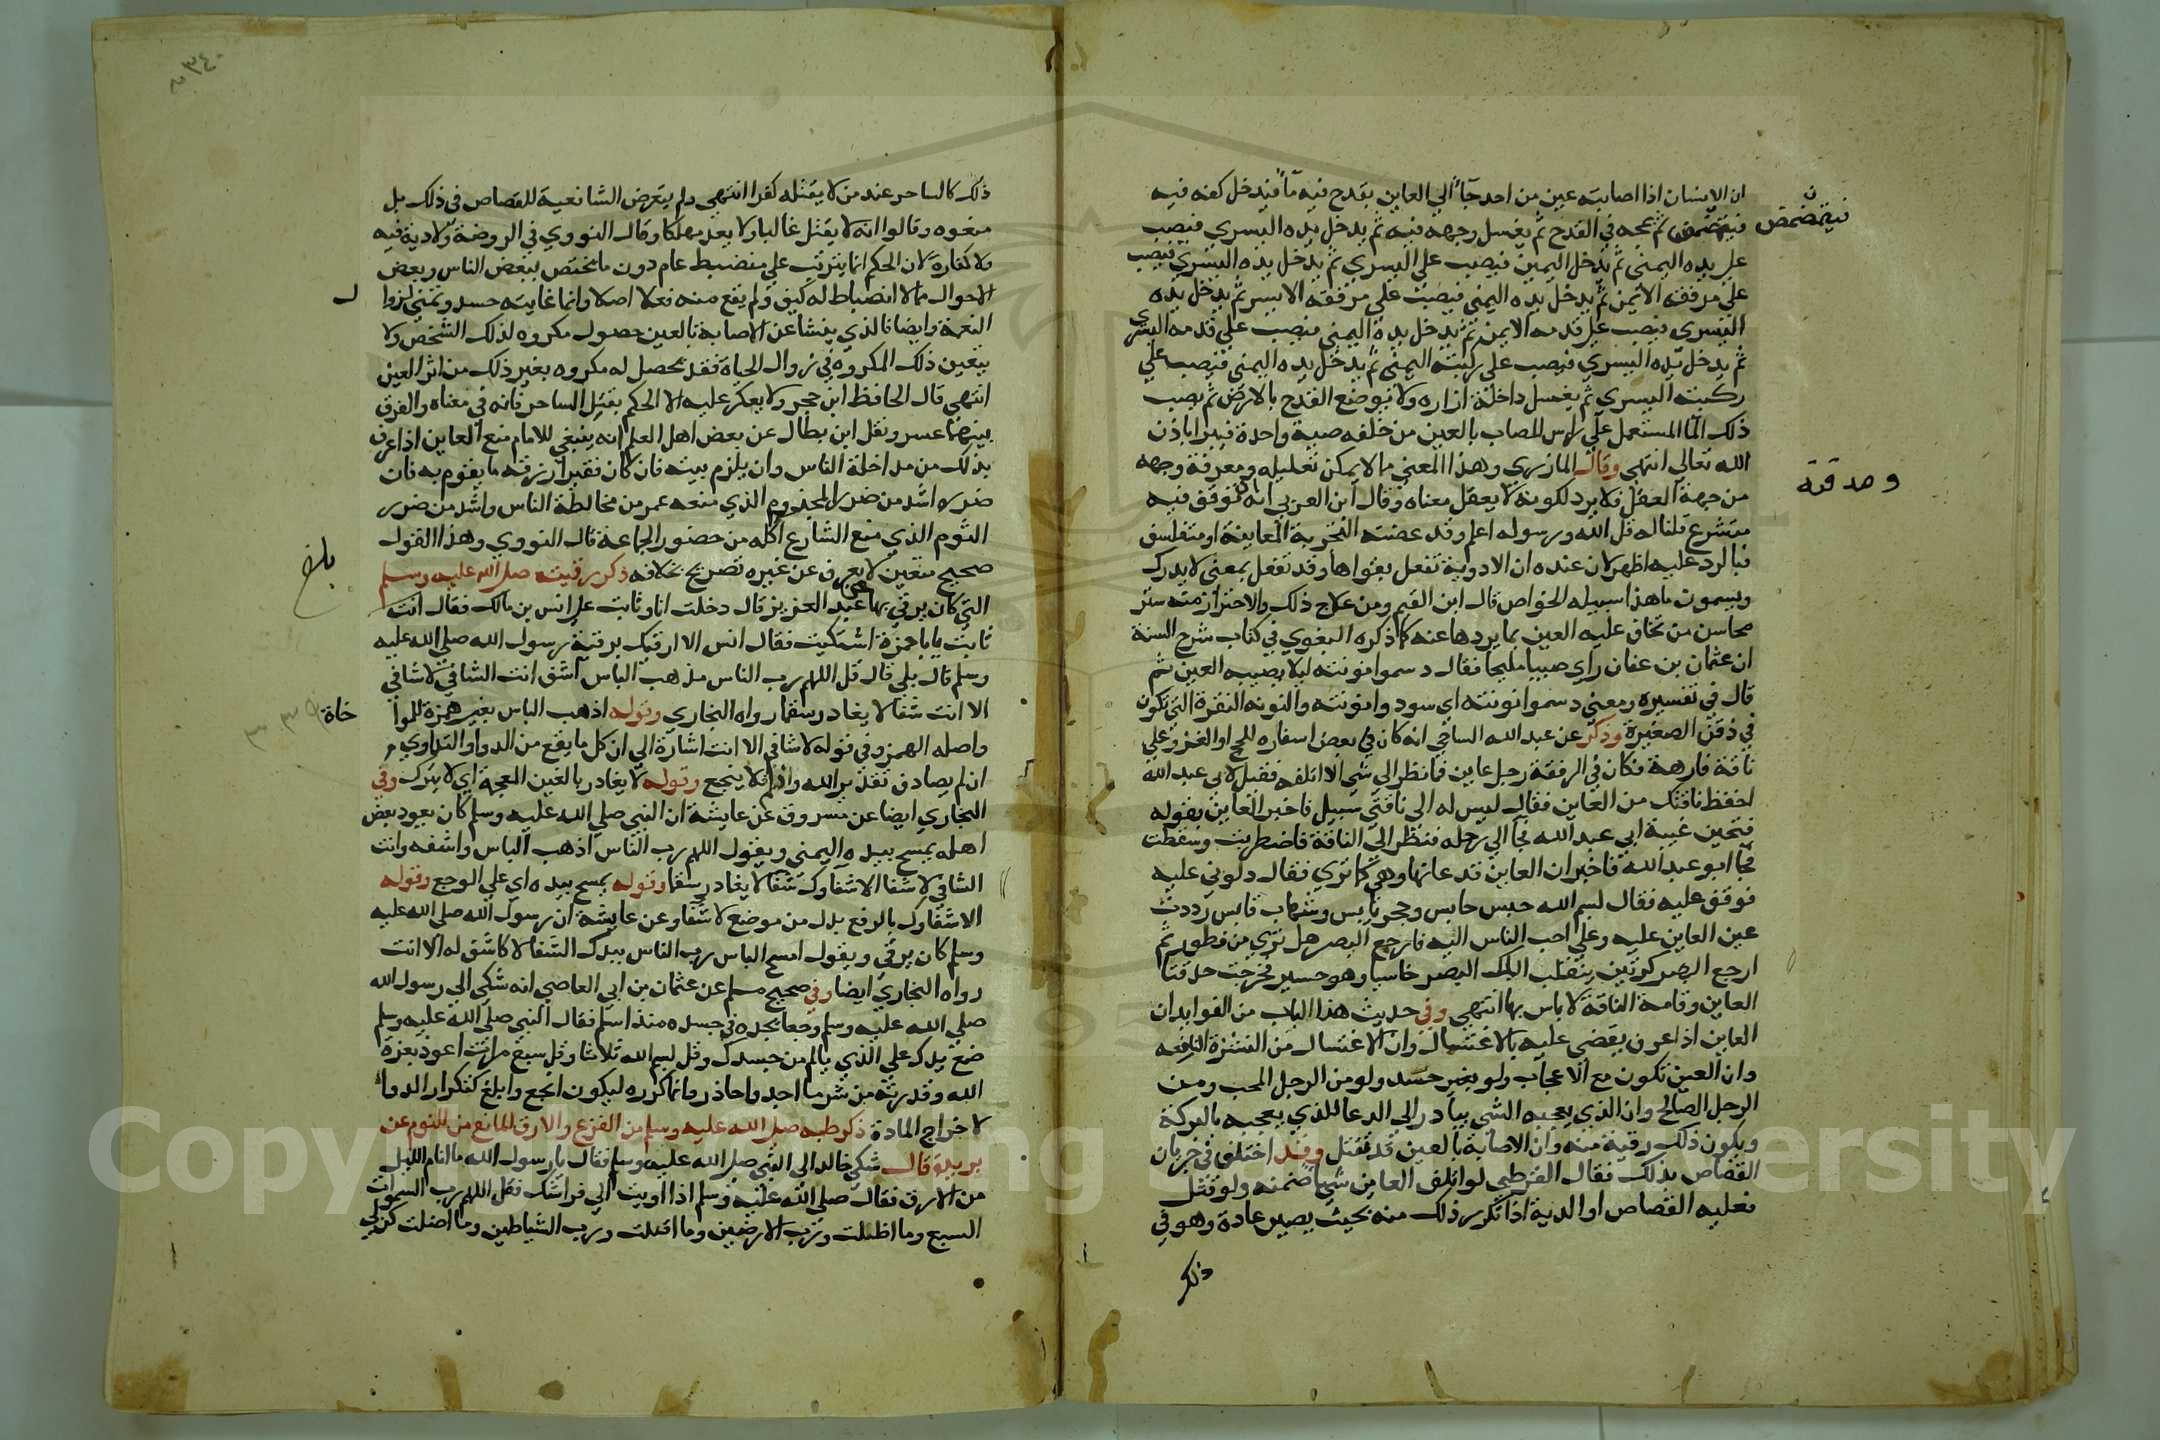 ان الانسان اذا اصابته عين من احد جآءَ الي العاين بقدح فيه مآءً فيدخل كفه فيه
فيتمضمض ثم يمجه في القدح ثم يغسل وجهه فيه ثم يدخل يده اليسري فيصب
فيتمضمض
علي يده اليمني ثم يدخل اليمين فيصب علي اليسري ثم يدخل يده اليسري فيصب
علي مرفقه الايمن ثم يدخل يده اليمني فيصب علي مرفقه الايسر ثم يدخل يده
اليسري فيصب علي قدمه الايمن ثم يدخل يده اليمني فيصب علي قدمه اليسري
ثم يدخل يده اليسري فيصب علي ركبته اليمني ثم يدخل يده اليمني فيصب علي
ركبته اليسري ثم يغسل داخلة ازاره ولا يوضع القدح بالارض ثم يصب
ذلك المآ المستعمل علي راس المصاب بالعين من خلفه صبة واحدة فيبرا باذن
الله تعالي انتهي وقال المازري وهذا المعني مما لا يمكن تعليله ومعرفة وجهه
من جهة العقل فلا يرد لكونه لا يعقل معناه وقال ابن العربي ان توقف فيه
متشرع قلنا له قل الله ورسوله اعلم وقد عضته التجربة المعاينة او متفلسف
فالرد عليه اظهر لان عنده ان الادوية تفعل بقواها وقد تفعل بمعني لا يدرك
ويسمون ما هذا سبيله الخواص قال ابن القيم ومن علاج ذلك والاحتراز منه ستر
محاسن من تخاف عليه العين بما يردها عنه كما ذكره البغوي في كتاب شرح السنة
ان عثمان بن عفان راي صبيا مليحا فقال دسموا نونته ليلا يصيبه العين ثم
قال في تفسيره ومعني دسموا نونته اي سودوا نونته والنونه النقرة التي تكون
في ذقن الصغيرة وذكر عن عبد الله الساجي انه كان في بعض اسفاره للحج او الغزو علي
ناقة فارهة فكان في الرفقة رجل عاين فما نظر الي شي الا اتلفه فقيل لابي عبد الله
احفظ ناقتك من العاين فقال ليس له الي ناقتي سبيل فاخبر العاين بقوله
فتحين غيبة ابي عبد الله فجا الي رحله فنظر الي الناقة فاضطربت وسقطت
فجا ابو عبد الله فاخبر ان العاين قد عانها وهي كما تري فقال دلوني عليه
فوقف عليه فقال لبسم الله حبس حابس وحجر يابس وشهاب قابس رددت
عين العاين عليه وعلي احب الناس اليه فارجع البصر هل تري من فطور ثم
ارجع البصر كرتين ينقلب اليك البصر خاسيا وهو حسير فخرجت حدقتا
العاين وقامة الناقة لا باس بها انتهي وفي حديث هذا الباب من الفوايد ان
العاين اذا عرف يقضي عليه بالاغتسال وان الاغتسال من النشرة النافعه
وان العين تكون مع الاعجاب ولو بغير حسد ولو من الرجل المحب ومن
الرجل الصالح وان الذي يعجبه الشي يبادر الي الدعا للذي يعجبه بالبركة
ويكون ذلك رقية منه وان الاصابة بالعين قد تقتل وقد اختلف في جريان
القصاص بذلك فقال القرطبي لو اتلف العاين شيا ضمنه ولو قتل
فعليه القصاص او الدية اذا تكرر ذلك منه بحيث يصير عادة وهو في
ذلك
ذلك كالساحر عند من لا يقتله كفرا انتهي ولم يتعرض الشافعية للقصاص في ذلك بل
منعوه وقالوا انه لا يقتل غالبا ولا يعد مهلكا وقال النووي في الروضة ولا دية فيه
ولا كفارة لان الحكم انما يترتب علي منضبط عام دون ما يختص ببعض الناس وبعض
الاحوال مما لا انضباط له كيف ولم يقع منه فعلا اصلا وانما غايته حسد وتمني لزوا
ل
النعمة وايضا فالذي ينشا عن الاصابة بالعين حصول مكروه لذلك الشخص ولا
يتعين ذلك المكروه في زوال الحياة فقد يحصل له مكروه بغير ذلك من اثر العين
انتهي قال الحافظ ابن حجر ولا يعكر عليه الا الحكم بقتل الساحر فانه في معناه والفرق
بينهما عسر ونقل ابن بطال عن بعض اهل العلم انه ينبغي للامام منع العاين اذا عرف
بذلك من مداخلة الناس وان يلزم بيته فان كان فقيرا رزقه ما يقوم به فان
ضرره اشد من ضرر المجذوم الذي منعه عمر من مخالطة الناس واشد من ضرر
الثوم الذي منع الشارع اكله من حضور الجماعة قال النووي وهذا القول
بلغ
صحيح متعين لا يعرف عن غيره تصريح بخلافه ذكر رقيته صلي الله عليه وسلم
التي كان يرقي بها عن عبد العزيز قال دخلت انا وثابت علي انس بن مالك فقال انت
ثابت يابا حمزة اشتكيت فقال انس الا ارقيك برقية رسول الله صلي الله عليه
وسلم قال بلي قال قل اللهم رب الناس مذهب الباس اشف انت الشافي لا شافي
الا انت شفا لا يغادر سقما رواه البخاري وقوله اذهب الباس بغير همزة للموا
خاة
واصله الهمز وفي قوله لا شافي الا انت اشارة الي ان كل ما يقع من الدوا والتداوي
ان لم يصادف تقدير الله والا فلا ينجع وقوله لا يغادر بالغين المعجمة اي لا يترك وفي
البخاري ايضا عن مسروق عن عايشة ان النبي صلي الله عليه وسلم كان يعود بعض
اهله يمسح بيده اليمني ويقول اللهم رب الناس اذهب الباس واشفه وانت
الشافي لا شفا الا شفاوك شفا لا يغادر سقما وقوله يمسح بيده اي علي الوجع وقوله
الا شفاوك بالرفع بدل من موضع لا شفا وعن عايشة ان رسول الله صلي الله عليه
وسلم كان يرقي ويقول امسح الباس رب الناس بيدك الشفا لا كاشف له الا انت
رواه البخاري ايضا وفي صحيح مسلم عن عثمان بن ابي العاصي انه شكي الي رسول الله
صلي الله عليه وسلم وجعا يجده في جسده منذ اسلم فقال النبي صلي الله عليه وسلم
ضع يدك علي الذي يالم من جسدك وقل بسم الله ثلاثا وقل سبع مرات اعوذ بعزة
الله وقدرته من شر ما اجد واحاذر وانما كرره ليكون انجع وابلغ كتكرار الدوا
لاخراج المادة ذكر طبه صلي الله عليه وسلم من الفزع والارق المانع من النوم عن
بريدة قال شكي خالد الي النبي صلي الله عليه وسلم فقال يا رسول الله ما انام الليل
من الارق فقال صلي الله عليه وسلم اذا اويت الي فراشك فقل اللهم رب السموات
السبع وما اظلت ورب الارضين وما اقلت ورب الشياطين وما اضلت كن لي
٣٤٠
Copy King Saud University